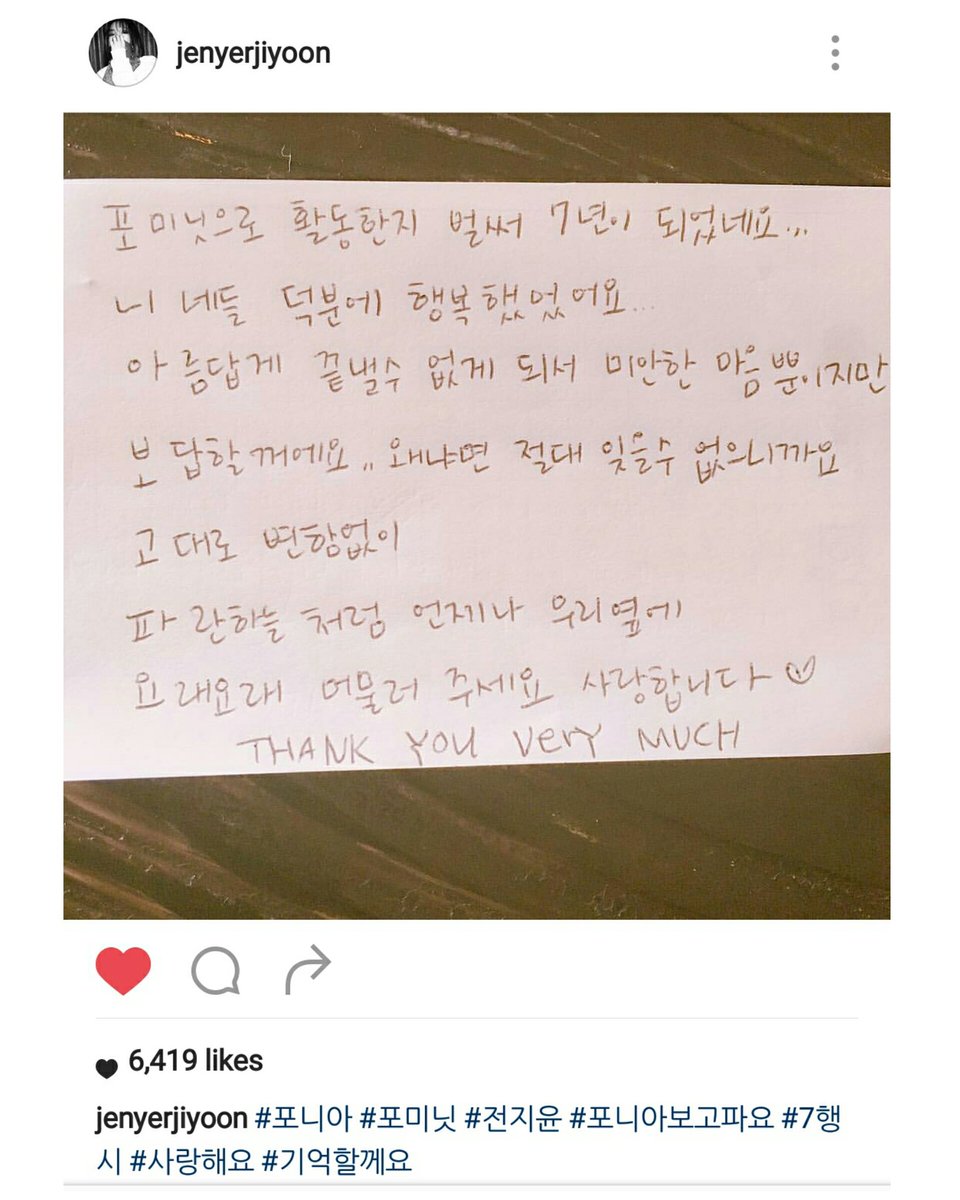 jenyerjiyoon
포미닛으로 활동한지 벌써 7년이 되었네요...
니네들 덕분에 행복했었어요...
아름답게 끝낼수 없게 되서 미안한 마음뿐이지만
보답할꺼에요.. 왜냐면 절대 잊을수 없으니까요
고대로 변함없이
파란하늘처럼 언제나 우리옆에
요래요래 머물러 주세요 사랑합니다♡
THANK YOU VerY MUCH
6,419 likes
jenyerjiyoon #포니아 #포미닛 #전지윤 #포니아보고파요 #7행
시 #사랑해요 #기억할께요